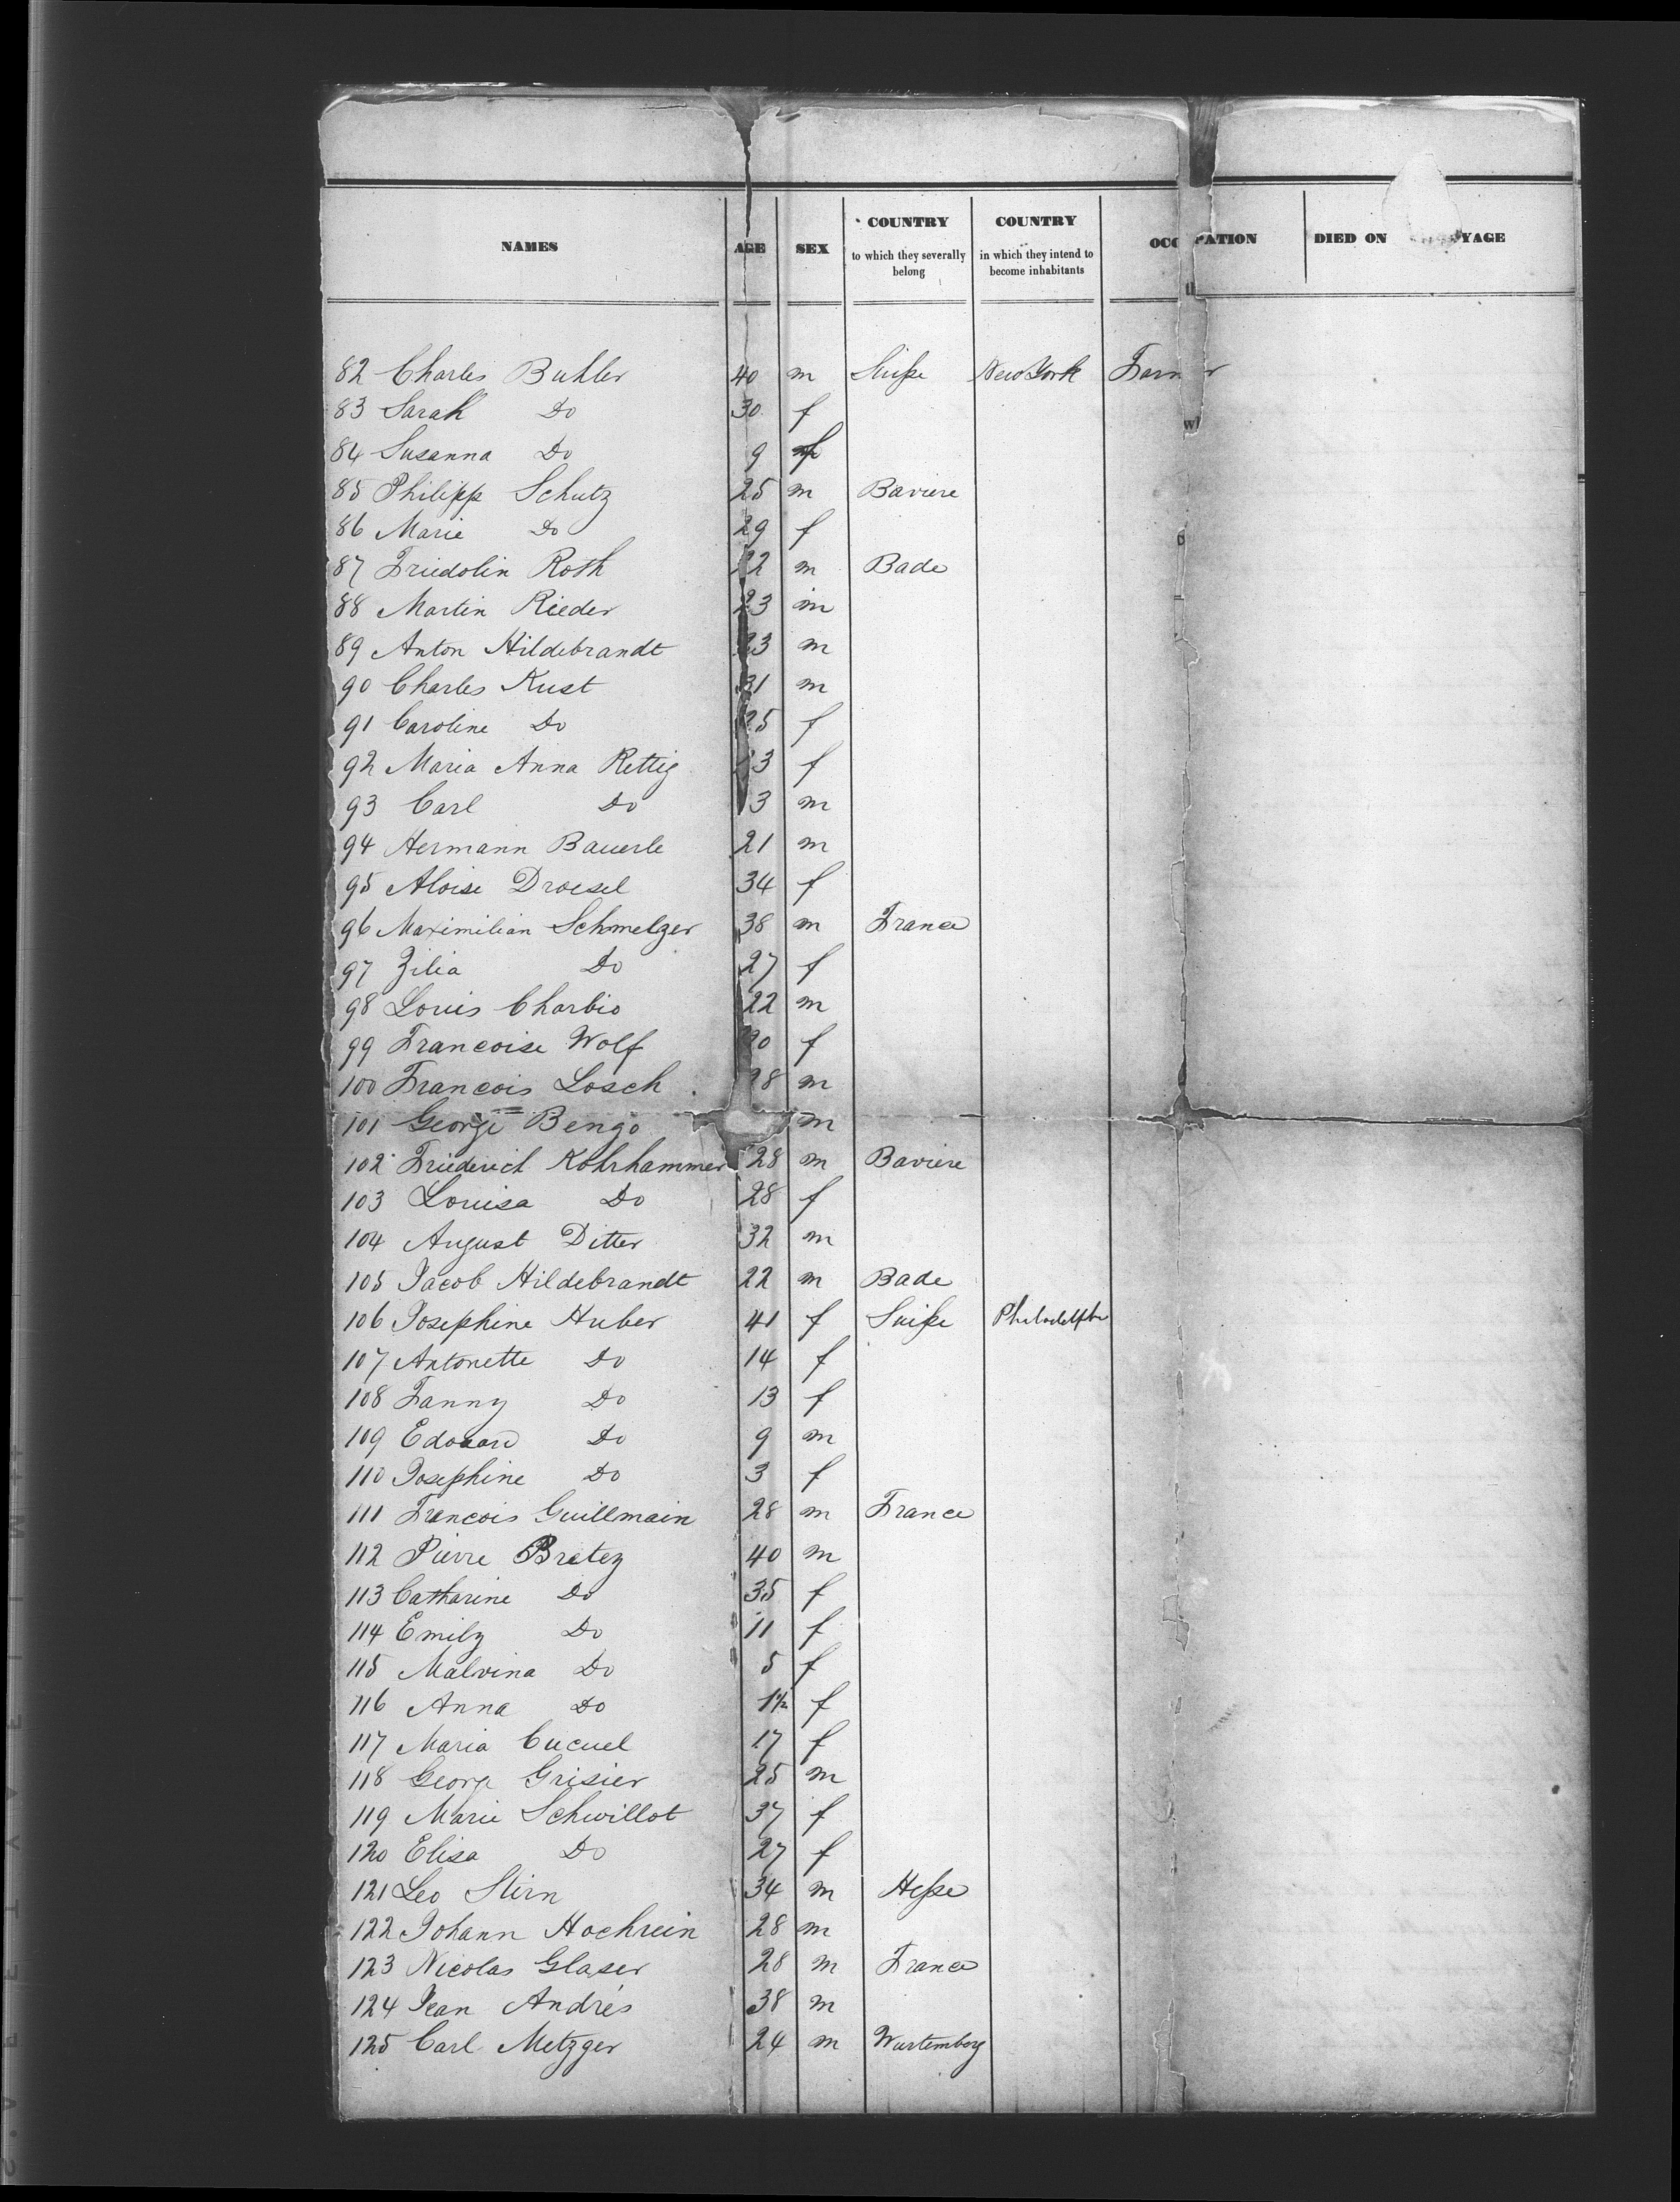 NAMES AGE SEX COUNTRY to which they severally belong COUNTRY in which they intend to become inhabitants OCC PATION DIED ON YAGE
82 Charles Buhler 40 m Suisse New York Farm r
83 Sarah Do 30 f
84 Susanna Do 9 f
85 Philipp Schutz 25 m Baviere
86 Marie Do 29 f
87 Friedolin Roth 22 m Bade
88 Martin Rieder 23 m
89 Anton Hildebrandt 23 m
90 Charles Kust 31 m
91 Caroline Do 25 f
92 Maria Anna Rettig 3 f
93 Carl Do 3 m
94 Hermann Bauerle 21 m
95 Aloise Droesel 34 f
96 Maximilian Schmelzer 38 m France
97 Zilia Do 27 f
98 Louis Charbio 22 m
99 Francoise Wolf 20 f
100 Francois Losch 28 m
101 George Bengo m
102 Friederich Kohrhammer 28 m Baviere
103 Louisa Do 28 f
104 August Ditter 32 m
105 Jacob Hildebrandt 22 m Bade
106 Josephine Huber 41 f Suisse Philadelphi
107 Antonette Do 14 f
108 Fanny Do 13 f
109 Edouard Do 9 m
110 Josephine Do 3 f
111 Francois Guillmain 28 m France
112 Pierre Bretez 40 m
113 Catharine Do 35 f
114 Emily Do 11 f
115 Malvina Do 5 f
116 Anna Do 1½ f
117 Maria Cucuel 17 f
118 George Grisier 25 m
119 Marie Schwillot 37 f
120 Elisa Do 27 f
121 Leo Stirn 34 m Hesse
122 Johann Hochrein 28 m
123 Nicolas Glaser 28 m France
124 Jean Andrés 38 m
125 Carl Metzger 24 m Wurtemberg